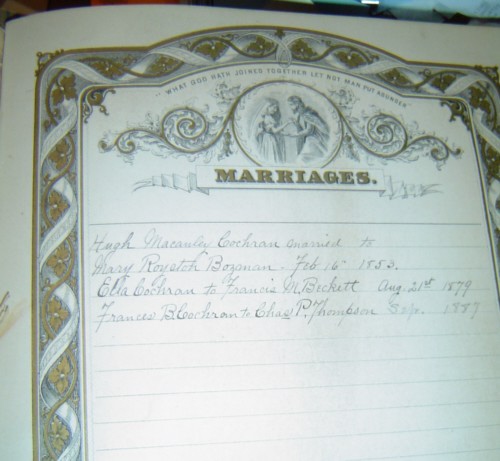 "WHAT GOD HATH JOINED TOGETHER LET NOT MAN PUT ASUNDER"
MARRIAGES.
Hugh Macauley Cochran married to
Mary Royston Bozman. Feb 16 1853.
Ella Cochran to Francis M. Beckett Aug. 21st 1879
Frances B. Cochran to Chas P. Thompson 1887